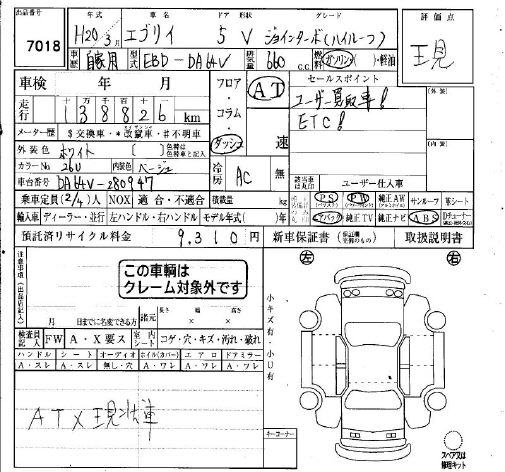 出品番号 7018
年式 H20 3月
車名 エブリイ
ドア 形状 5 V
グレード ジョインターボ(ハイルーフ)
評価点 現
車歴 自家用
型式 EBD-DA64V
排気量 660 c.c
燃料 ガソリン・軽油
車検 年 月
フロア・コラム・ダッシュ
AT
速
セールスポイント
ユーザー買取車!
ETC!
外装
内装
走行 十万千百十一
138826 km
メーター歴 $交換車・*改竄車・#不明車
外装色 ホワイト
色替は色替車と記入
カラーNo 26U 内装色 ベージュ
車台番号 DA64V-280947
冷房 AC
無
該当車は丸印
ユーザー仕入車
乗車定員(2/4)人 NOX 適合・不適合 積載量 kg
PS PW 純正AW サンルーフ 革シート
輸入車 ディーラー・並行 左ハンドル・右ハンドル モデル年式( )年
エアバック 純正TV 純正ナビ ABS
預託済リサイクル料金 9,310円
新車保証書 取扱説明書
注意事項(出品店記入)
この車輌は
クレーム対象外です
月 日までに名変できる方
諸元 長さ 幅 高さ
小キズ有・小凹有
左 右
検査員記入 FW A・X要ス 室内シート コゲ・穴・キズ・汚れ・破れ
ハンドル シート オーディオ ホイル(カバー) エアロ ドアミラー
A・スレ A・スレ 無し・穴 A・ワレ A・ワレ A・ワレ
AT× 現状車
キーコーナー
スペアスは
修理キット